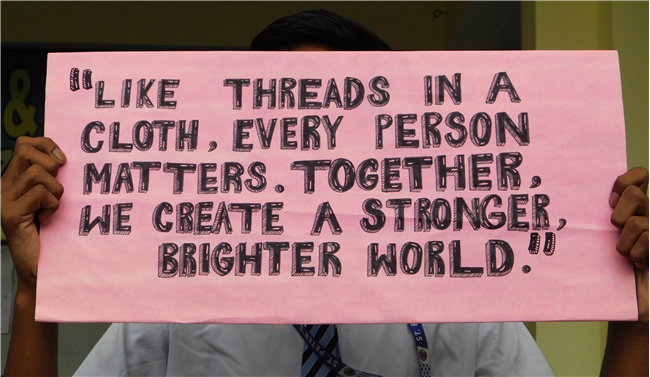 "LIKE THREADS IN A
CLOTH, EVERY PERSON
MATTERS. TOGETHER,
WE CREATE A STRONGER,
BRIGHTER WORLD."
&